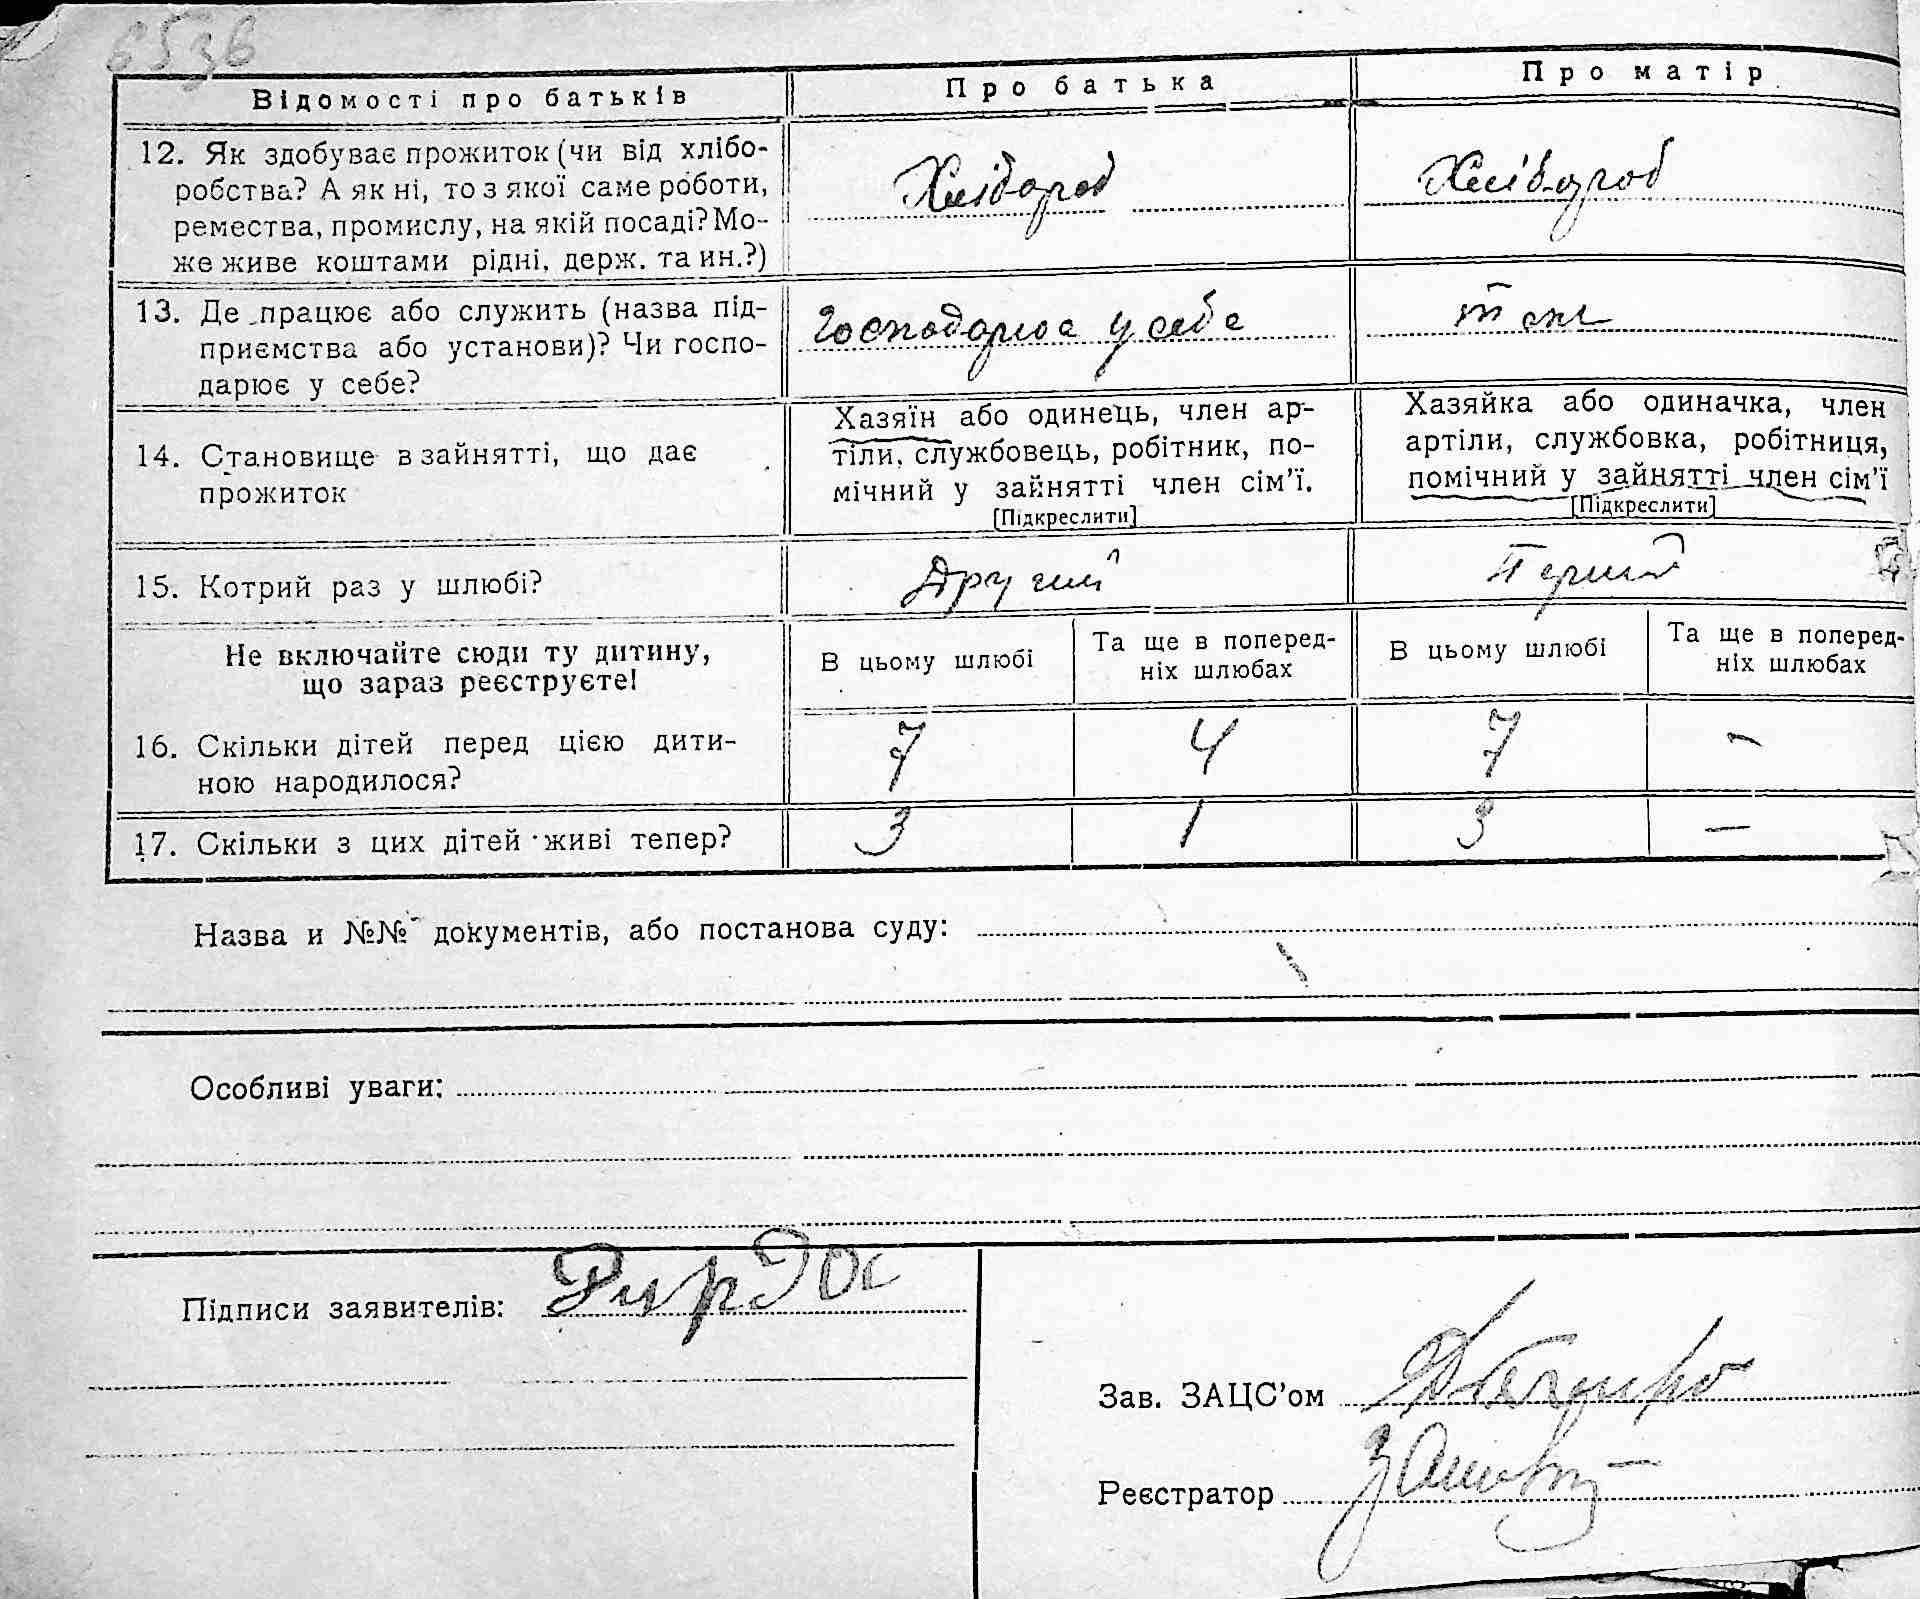 653в
Відомості про батьків
Про батька
Про матір
12. Як здобуває прожиток (чи від хлібо-
робства? А як ні, то з якої саме роботи,
ремества, промислу, на якій посаді? Мо-
же живе коштами рідні, держ. та ин.?)
Хлібороб
Хлібороб
13. Де працює або служить (назва під-
приємства або установи)? Чи госпо-
дарює у себе?
Господарює у себе
теж
14. Становище в зайнятті, що дає
прожиток
Хазяїн або одинець, член ар-
тіли, службовець, робітник, по-
мічний у зайнятті член сім’ї.
[Підкреслити]
Хазяйка або одиначка, член
артіли, службовка, робітниця,
помічний у зайнятті член сім’ї
[Підкреслити]
15. Котрий раз у шлюбі?
Другий
Перший
Не включайте сюди ту дитину,
що зараз реєструєте!
В цьому шлюбі
Та ще в поперед-
ніх шлюбах
В цьому шлюбі
Та ще в поперед-
ніх шлюбах
16. Скільки дітей перед цією дити-
ною народилося?
7
4
7
-
17. Скільки з цих дітей живі тепер?
3
1
3
—
Назва и №№ документів, або постанова суду:
Особливі уваги:
Підписи заявителів:
Зав. ЗАЦС’ом
Реєстратор